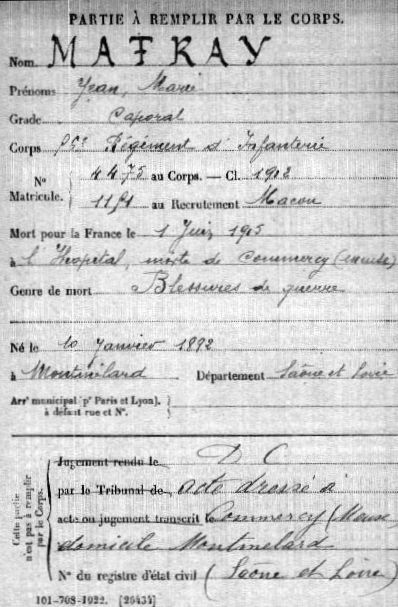 PARTIE À REMPLIR PAR LE CORPS.
Nom MATRAY
Prénoms Jean, Marie
Grade Caporal
Corps Régiment d'Infanterie
N° Matricule. 4475 au Corps. — Cl. 1912
au Recrutement Macon
Mort pour la France le 1 Juin 1915
à l'Hopital, mixte de Commercy (Meuse)
Genre de mort Blessures de guerre
Né le 10 Janvier 1892
à Montmélard Département Saône et Loire
Arr' municipal (p' Paris et Lyon),
à défaut rue et N°.
Cette partie n'est pas à remplir par le Corps.
Jugement rendu le D C
par le Tribunal de acte dressé à
acte ou jugement transcrit le Commercy (Meuse
domicile Montmelard
N° du registre d'état civil (Saone et Loire)
101-708-1922. [26434]